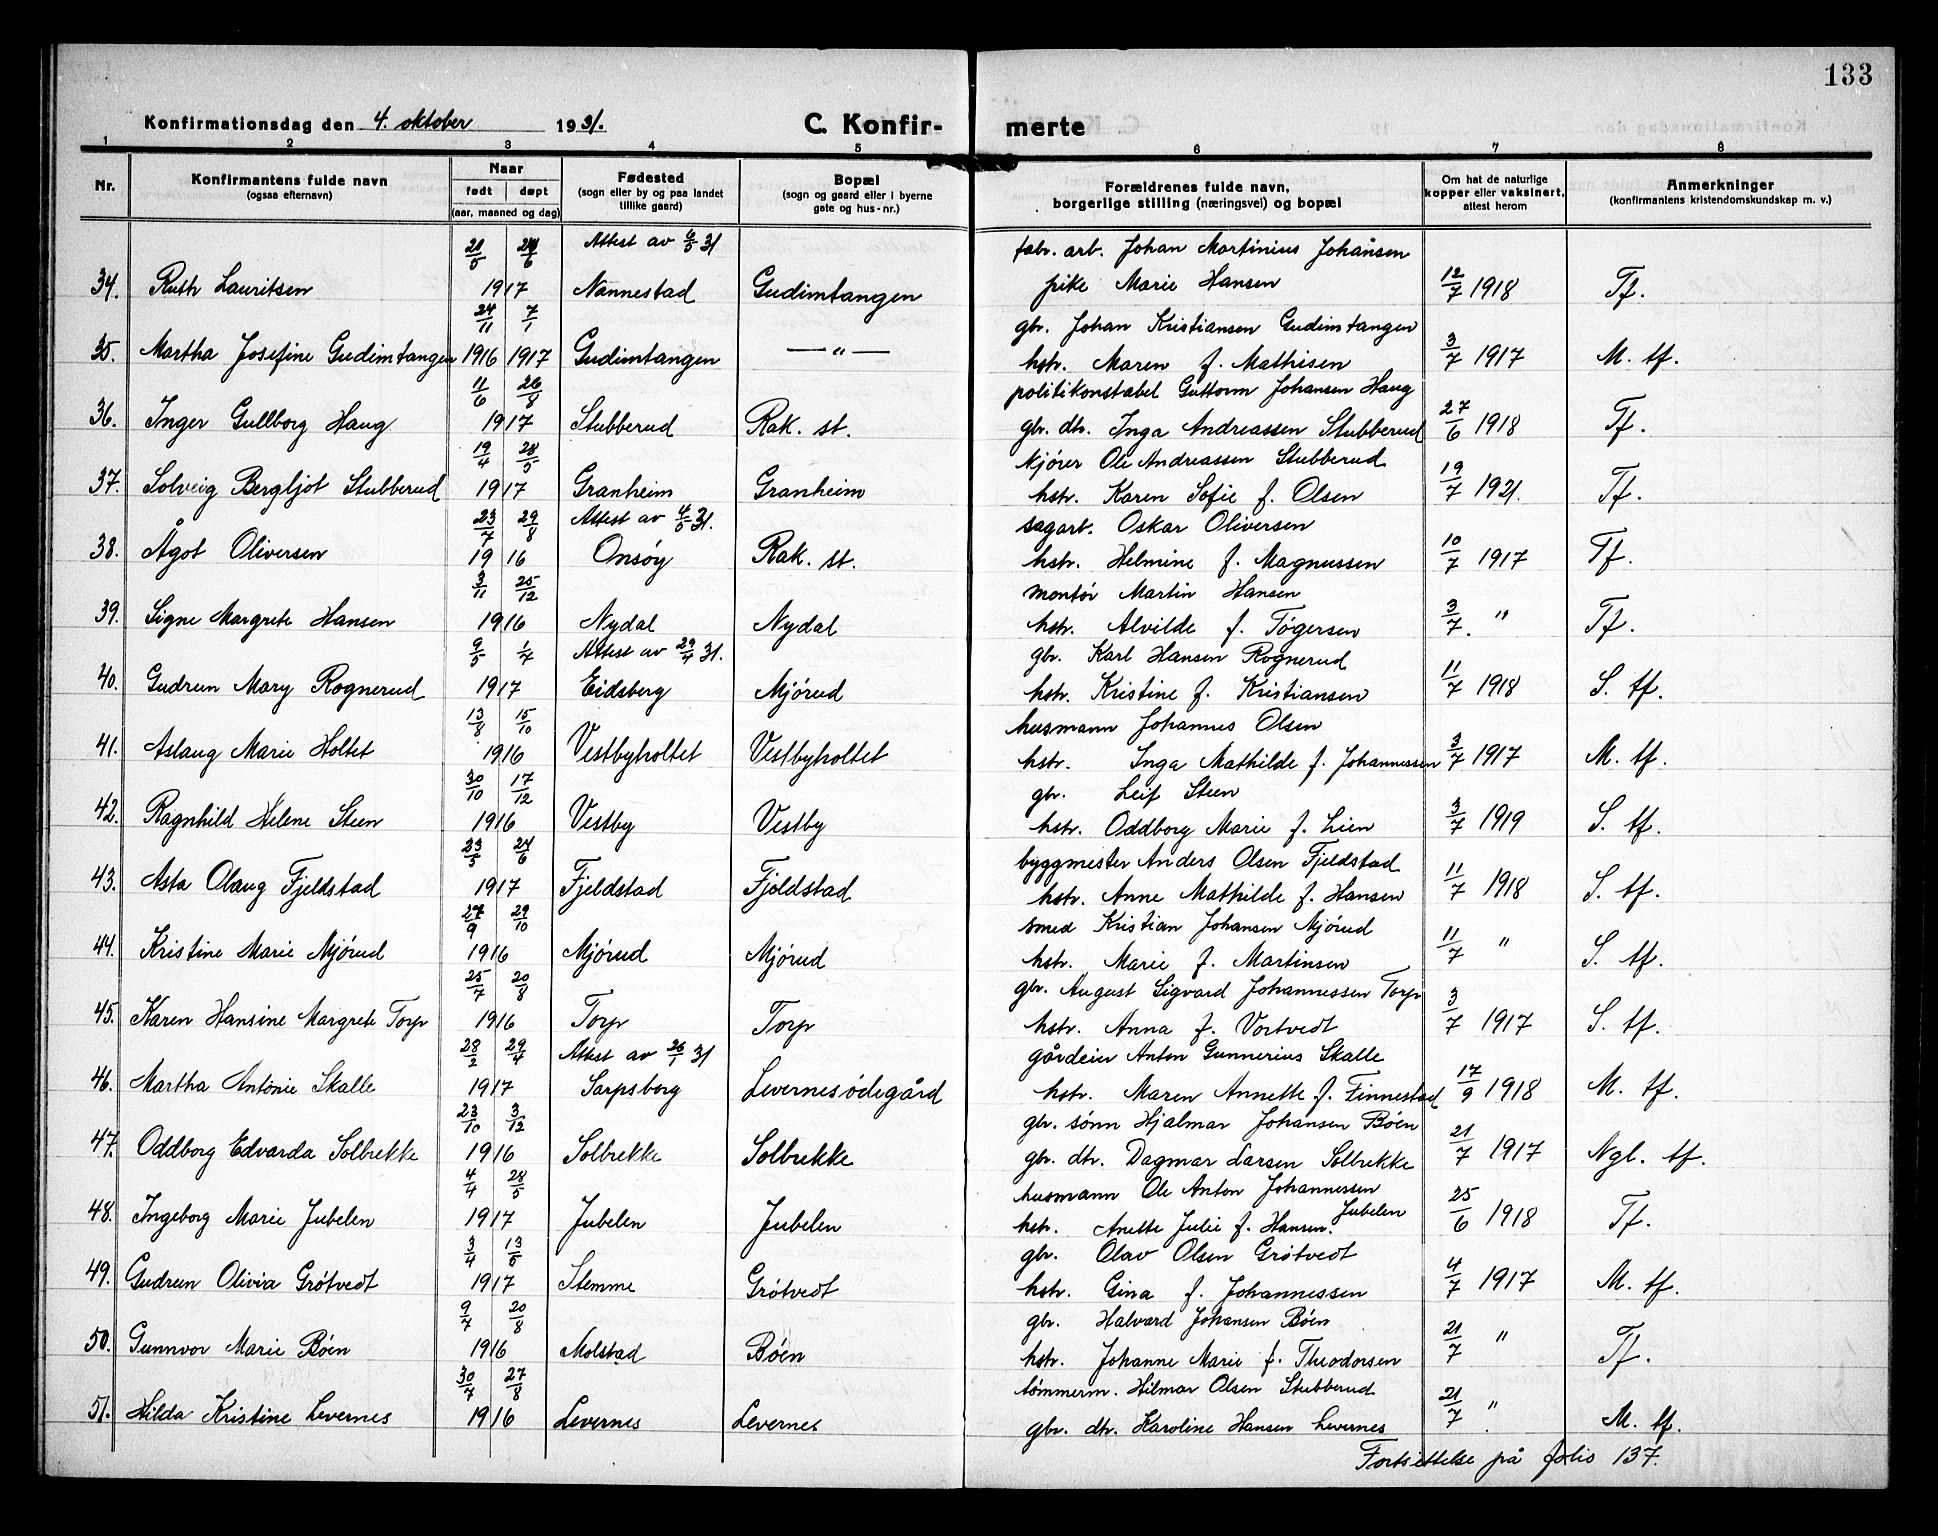 133
Konfirmationsdag den 4. oktober 1931. C. Konfirmerte
1 2 3 4 5 6 7 8
Nr. Konfirmantens fulde navn (ogsaa efternavn) Naar født døpt (aar, maaned og dag) Fødested (sogn eller by og paa landet tillike gaard) Bopæl (sogn og gaard eller i byerne gate og hus-nr.) Forældrenes fulde navn, borgerlige stilling (næringsvei) og bopæl Om hat de naturlige kopper eller vaksinert, attest herom Anmerkninger (konfirmantens kristendomskundskap m. v.)
Attest av 6/5 31 fabr. arb. Johan Martinius Johansen
34. Ruth Lauritsen 21/5 24/6 1917 Nannestad Gudimtangen pike Marie Hansen 12/7 1918 Tf.
gbr. Johan Kristiansen Gudimtangen
35. Martha Josefine Gudimtangen 24/11 1916 7/1 1917 Gudimtangen — " — hstr. Maren f. Mathisen 3/7 1917 M. tf.
politikonstabel Guttorm Johansen Haug
36. Inger Gullborg Haug 11/6 26/8 1917 Stubberud Rak. st. gbr. dtr. Inga Andreassen Stubberud 27/6 1918 Tf.
kjører Ole Andreassen Stubberud
37. Solveig Bergljot Stubberud 19/4 28/5 1917 Granheim Granheim hstr. Karen Sofie f. Olsen 19/7 1921. Tf.
Attest av 4/5 31. sagarb. Oskar Oliversen
38. Ågot Oliversen 23/7 29/8 1916 Onsøy Rak. st. hstr. Helmine f. Magnussen 10/7 1917 Tf.
montør Martin Hansen
39. Signe Margrete Hansen 3/11 25/12 1916 Nydal Nydal hstr. Alvilde f. Tøgersen 3/7. " Tf.
Attest av 29/4 31. gbr. Karl Hansen Rognerud
40. Gudrun Mary Rognerud 9/5 1/7 1917 Eidsberg Mjørud hstr. Kristine f. Kristiansen 11/7 1918 S. tf.
husmann Johannes Olsen
41. Aslaug Marie Holtet 13/8 15/10 1916 Vestbyholtet Vestbyholtet hstr. Inga Mathilde f. Johannessen 3/7 1917 M. tf.
gbr. Leif Steen
42. Ragnhild Helene Steen 30/10 17/12 1916 Vestby Vestby hstr. Oddborg Marie f. Lien 3/7 1919 S. tf.
byggmester Anders Olsen Fjeldstad
43. Asta Olaug Fjeldstad 23/5 24/6 1917 Fjeldstad Fjeldstad hstr. Anne Mathilde f. Hansen 11/7 1918 S. tf.
smed Kristian Johansen Mjørud
44. Kristine Marie Mjørud 27/9 29/10 1916 Mjørud Mjørud hstr. Marie f. Martinsen 11/7 " S. tf.
gbr. August Sigvard Johannessen Torp
45. Karen Hansine Margrete Torp 25/7 20/8 1916 Torp Torp hstr. Anna f. Vortvedt 3/7 1917 S. tf.
Attest av 26/1 31 gårdeier Anton Gunnerius Skalle
46. Martha Antonie Skalle 28/2 29/4 1917 Sarpsborg Levernesødegård hstr. Maren Annette f. Finnestad 17/9 1918 M. tf.
gbr. sønn Hjalmar Johansen Bøen
47. Oddborg Edvarda Solbrekke 23/10 3/12 1916 Solbrekke Solbrekke gbr. dtr. Dagmar Larsen Solbrekke 21/7 1917 Ngl. tf.
husmann Ole Anton Johannessen Jubelen
48. Ingeborg Marie Jubelen 4/4 28/5 1917 Jubelen Jubelen hstr. Anette Julie f. Hansen. 25/6 1918 Tf.
gbr. Olav Olsen Grøtvedt
49. Gudrun Olivia Grøtvedt 3/4 13/5 1917 Stemme Grøtvedt hstr. Gina f. Johannessen 4/7 1917 M. tf.
gbr. Halvard Johansen Bøen
50. Gunnvor Marie Bøen 9/7 20/8 1916 Molstad Bøen hstr. Johanne Marie f. Theodorsen 21/7 " Tf.
tømmerm. Hilmar Olsen Stubberud
51. Hilda Kristine Levernes 30/7 27/8 1916 Levernes Levernes gbr. dtr. Karoline Hansen Levernes 21/7 " M. tf.
Fortsettelse på folio 137.